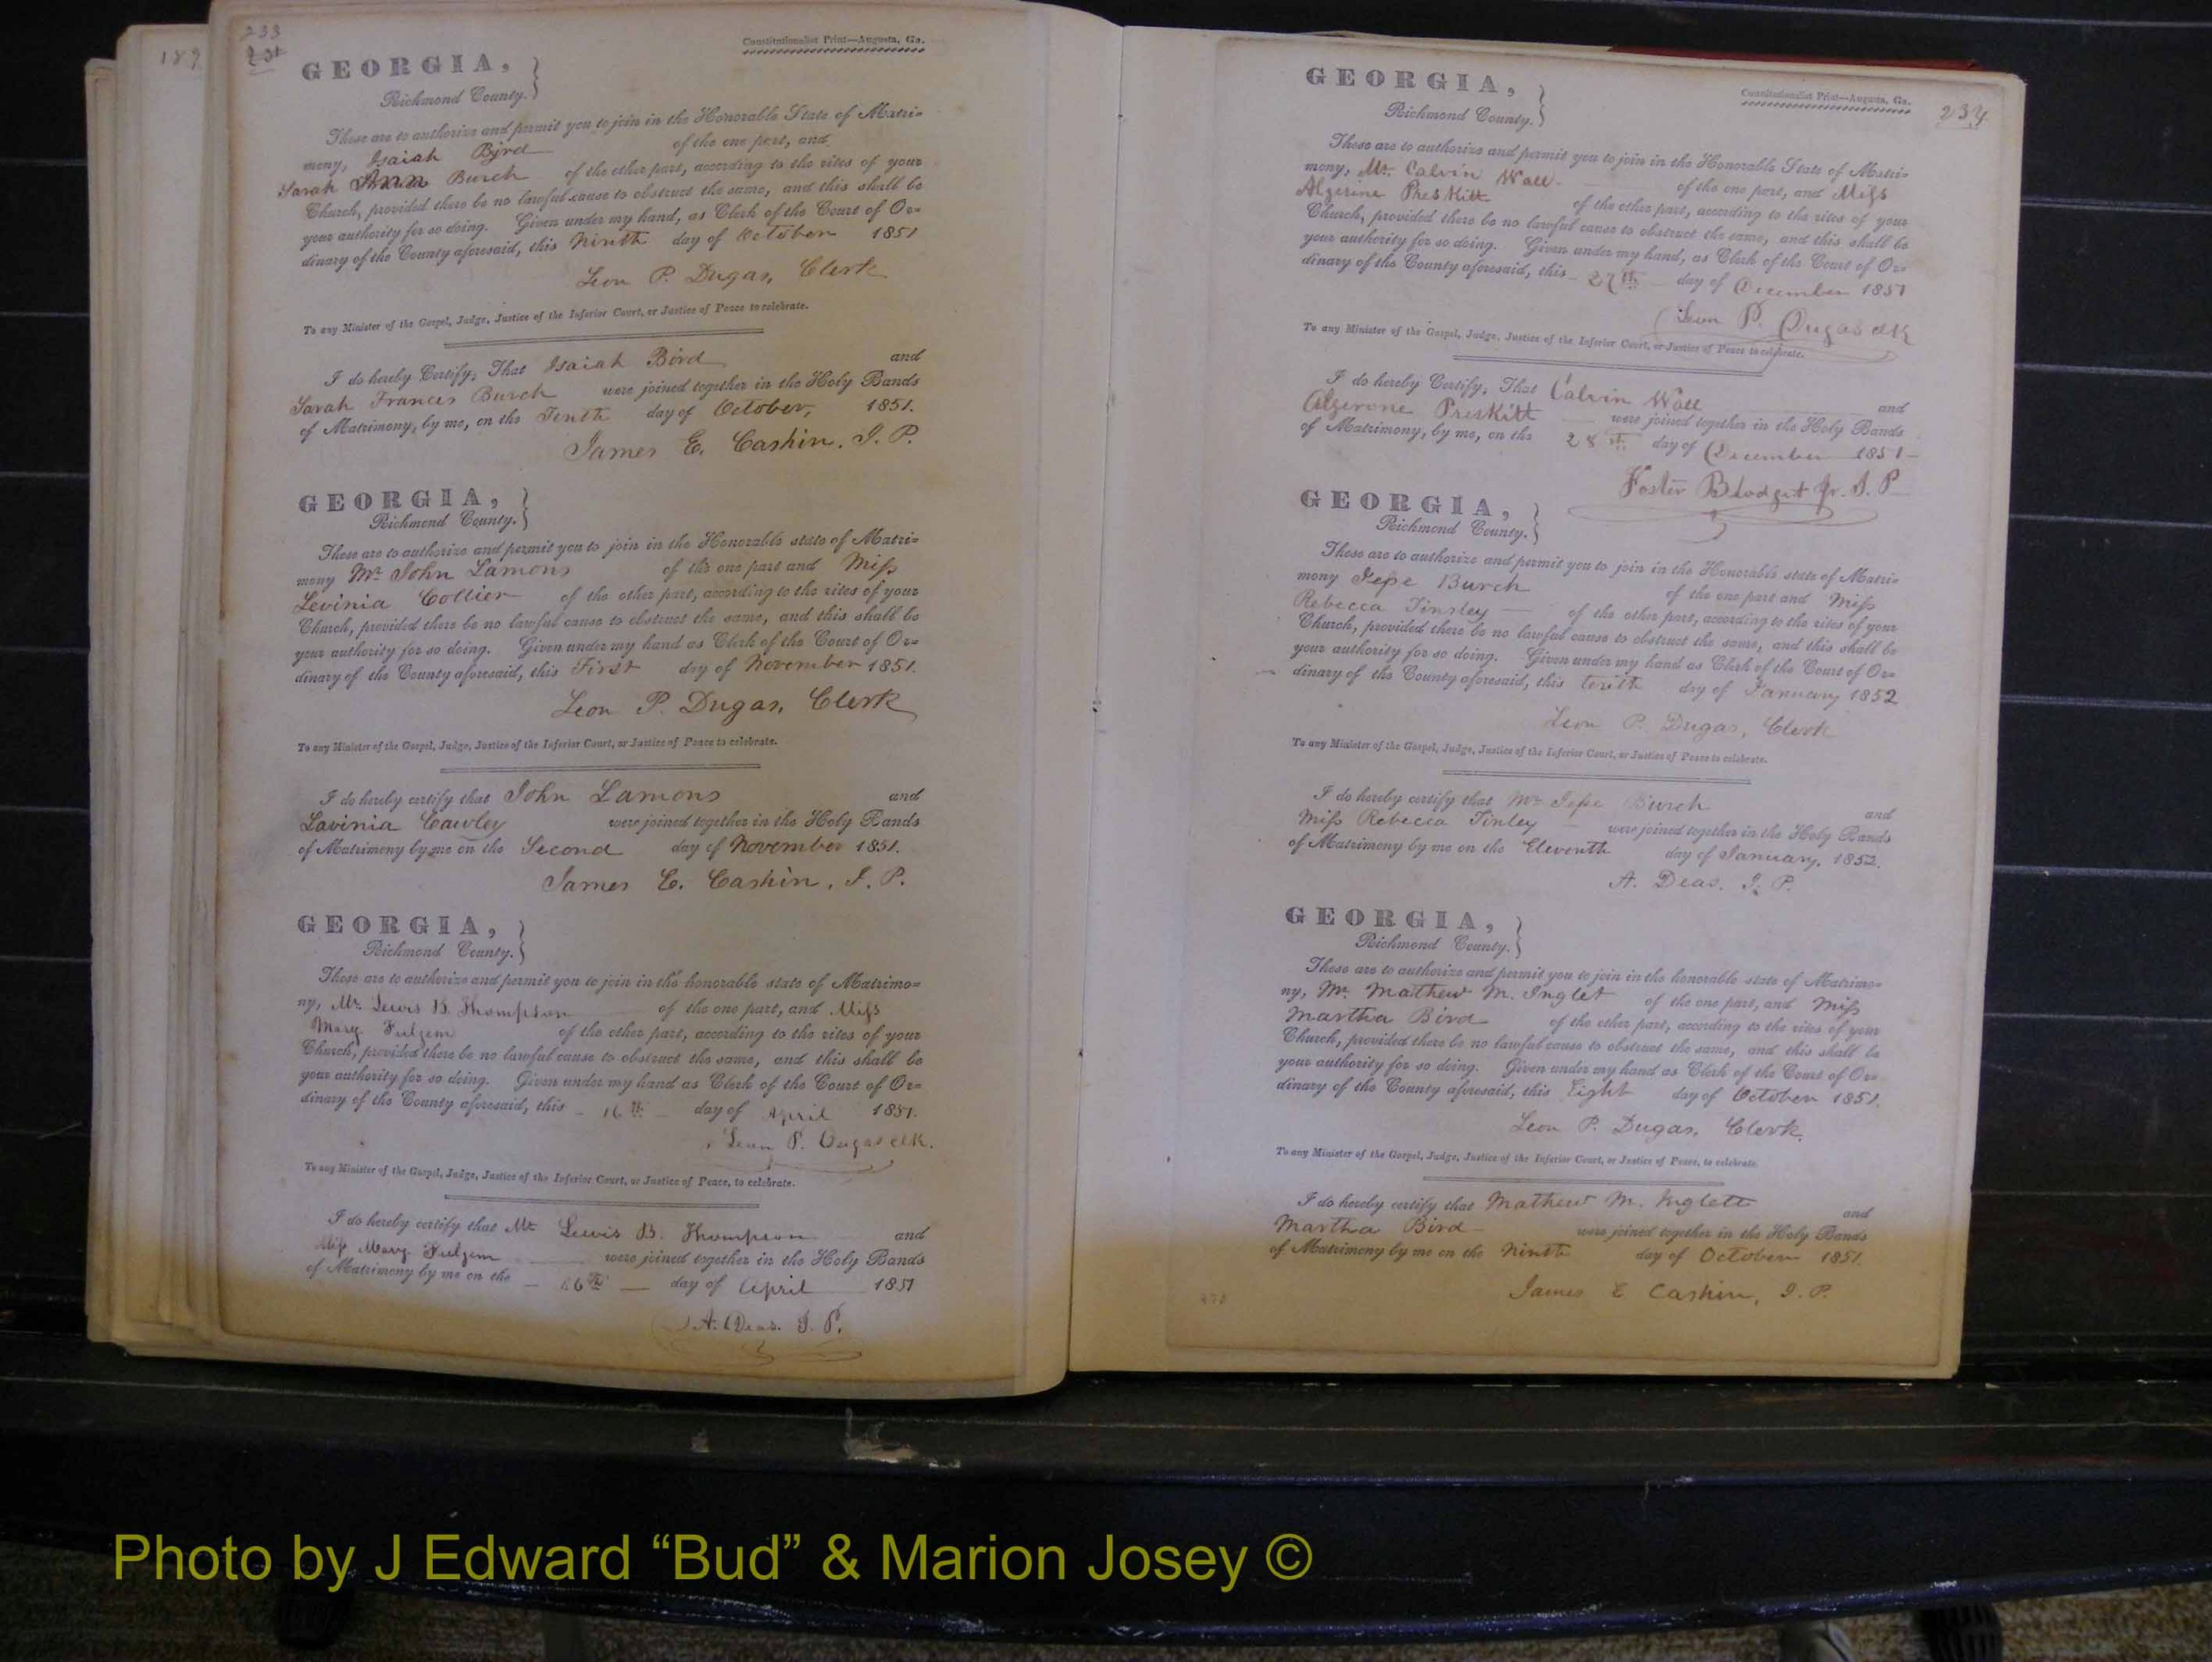 189
233
231
Constitutionalist Print—Augusta, Ga.
GEORGIA, }
Richmond County.
These are to authorize and permit you to join in the Honorable State of Matri=
mony, Isaiah Byrd of the one part, and
Sarah Burch of the other part, according to the rites of your
Church, provided there be no lawful cause to obstruct the same, and this shall be
your authority for so doing. Given under my hand, as Clerk of the Court of Or=
dinary of the County aforesaid, this Ninth day of October 1851
Leon P. Dugas, Clerk
To any Minister of the Gospel, Judge, Justice of the Inferior Court, or Justice of Peace to celebrate.
I do hereby Certify, That Isaiah Bird and
Sarah Frances Burch were joined together in the Holy Bands
of Matrimony, by me, on the Tenth day of October, 1851.
James E. Cashin, J. P.
GEORGIA, }
Richmond County.
These are to authorize and permit you to join in the Honorable state of Matri=
mony Mr John Lamons of the one part and Miss
Levinia Collier of the other part, according to the rites of your
Church, provided there be no lawful cause to obstruct the same, and this shall be
your authority for so doing. Given under my hand as Clerk of the Court of Or=
dinary of the County aforesaid, this First day of November 1851.
Leon P. Dugas, Clerk
To any Minister of the Gospel, Judge, Justice of the Inferior Court, or Justice of Peace to celebrate.
I do hereby certify that John Lamons and
Lavinia Cawley were joined together in the Holy Bands
of Matrimony by me on the Second day of November 1851.
James E. Cashin, J. P.
GEORGIA, }
Richmond County.
These are to authorize and permit you to join in the honorable state of Matrimo=
ny, Mr. Lewis B. Thompson of the one part, and Miss
Mary Fulgem of the other part, according to the rites of your
Church, provided there be no lawful cause to obstruct the same, and this shall be
your authority for so doing. Given under my hand as Clerk of the Court of Or=
dinary of the County aforesaid, this 16th day of April 1851.
Leon P. Dugas clk.
To any Minister of the Gospel, Judge, Justice of the Inferior Court, or Justice of Peace, to celebrate.
I do hereby certify that Mr Lewis B. Thompson and
Miss Mary Fulgem were joined together in the Holy Bands
of Matrimony by me on the 16th day of April 1851
A. Deas. J. P.
Constitutionalist Print—Augusta, Ga.
234
GEORGIA, }
Richmond County.
These are to authorize and permit you to join in the Honorable State of Matri=
mony, Mr. Calvin Wall of the one part, and Miss
Algerine Preskitt of the other part, according to the rites of your
Church, provided there be no lawful cause to obstruct the same, and this shall be
your authority for so doing. Given under my hand, as Clerk of the Court of Or=
dinary of the County aforesaid, this 27th day of December 1851
Leon P. Dugas clk
To any Minister of the Gospel, Judge, Justice of the Inferior Court, or Justice of Peace to celebrate.
I do hereby Certify, That Calvin Wall and
Algerone Preskitt were joined together in the Holy Bands
of Matrimony, by me, on the 28th day of December 1851
Foster Blodget Jr. J. P.
GEORGIA, }
Richmond County.
These are to authorize and permit you to join in the Honorable state of Matri=
mony Jesse Burch of the one part and Miss
Rebecca Tinsley of the other part, according to the rites of your
Church, provided there be no lawful cause to obstruct the same, and this shall be
your authority for so doing. Given under my hand as Clerk of the Court of Or=
dinary of the County aforesaid, this tenth day of January 1852
Leon P. Dugas, Clerk
To any Minister of the Gospel, Judge, Justice of the Inferior Court, or Justice of Peace to celebrate.
I do hereby certify that Mr Jesse Burch and
Miss Rebecca Tinley were joined together in the Holy Bands
of Matrimony by me on the Eleventh day of January, 1852.
A. Deas. J. P.
GEORGIA, }
Richmond County.
These are to authorize and permit you to join in the honorable state of Matrimo=
ny, Mr. Mathew M. Inglet of the one part, and Miss
Martha Bird of the other part, according to the rites of your
Church, provided there be no lawful cause to obstruct the same, and this shall be
your authority for so doing. Given under my hand as Clerk of the Court of Or=
dinary of the County aforesaid, this Eight day of October 1851.
Leon P. Dugas, Clerk.
To any Minister of the Gospel, Judge, Justice of the Inferior Court, or Justice of Peace, to celebrate.
I do hereby certify that Mathew M. Inglett and
Martha Bird were joined together in the Holy Bands
of Matrimony by me on the Ninth day of October 1851.
James E Cashin, J. P.
Photo by J Edward “Bud” & Marion Josey ©